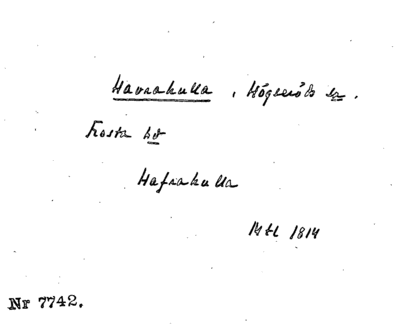 Havrakulla, Högseröds sn.
Frosta hd
Hafrakulla
Mtl 1814
Nr 7742.